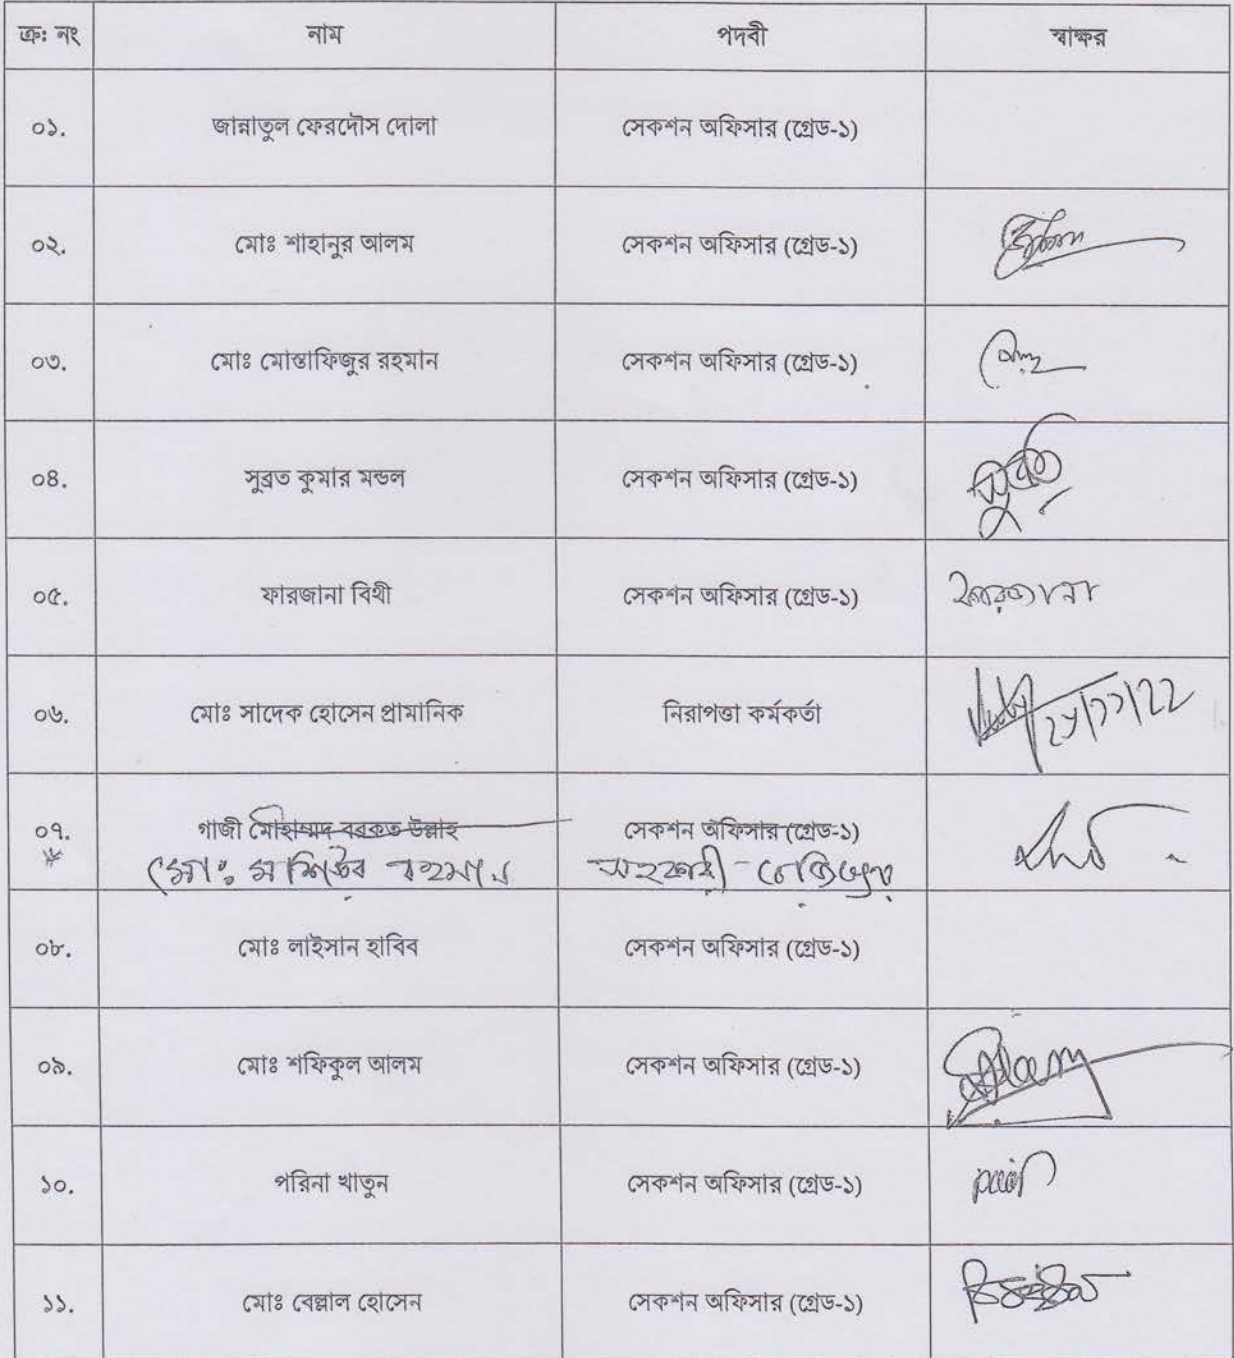 ক্রঃ নং নাম পদবী স্বাক্ষর
০১. জান্নাতুল ফেরদৌস দোলা সেকশন অফিসার (গ্রেড-১)
০২. মোঃ শাহানুর আলম সেকশন অফিসার (গ্রেড-১)
০৩. মোঃ মোস্তাফিজুর রহমান সেকশন অফিসার (গ্রেড-১)
০৪. সুব্রত কুমার মন্ডল সেকশন অফিসার (গ্রেড-১) সুব্রত
০৫. ফারজানা বিথী সেকশন অফিসার (গ্রেড-১) ফারজানা
০৬. মোঃ সাদেক হোসেন প্রামানিক নিরাপত্তা কর্মকর্তা
০৭. গাজী মোহাম্মদ বরকত উল্লাহ সেকশন অফিসার (গ্রেড-১)
মোঃ মশিউর রহমান সহকারী রেজিস্ট্রার
০৮. মোঃ লাইসান হাবিব সেকশন অফিসার (গ্রেড-১)
০৯. মোঃ শফিকুল আলম সেকশন অফিসার (গ্রেড-১)
১০. পরিনা খাতুন সেকশন অফিসার (গ্রেড-১)
১১. মোঃ বেল্লাল হোসেন সেকশন অফিসার (গ্রেড-১)